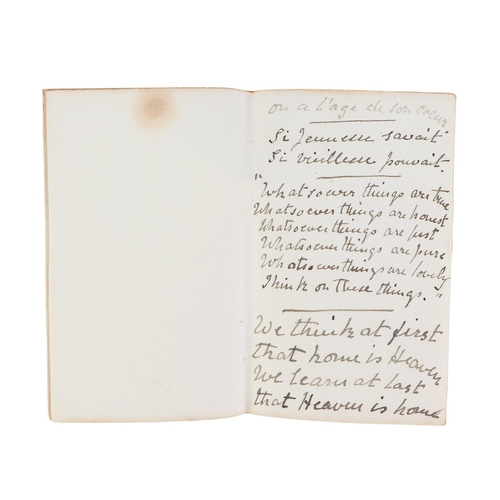 on a l'age de son coeur
Si Jeunesse savait
Si vieillesse pouvait.
"Whatsoever things are true
Whatsoever things are honest
Whatsoever things are just
Whatsoever things are pure
Whatsoever things are lovely
Think on these things."
We think at first
that home is Heaven
We learn at last
that Heaven is home